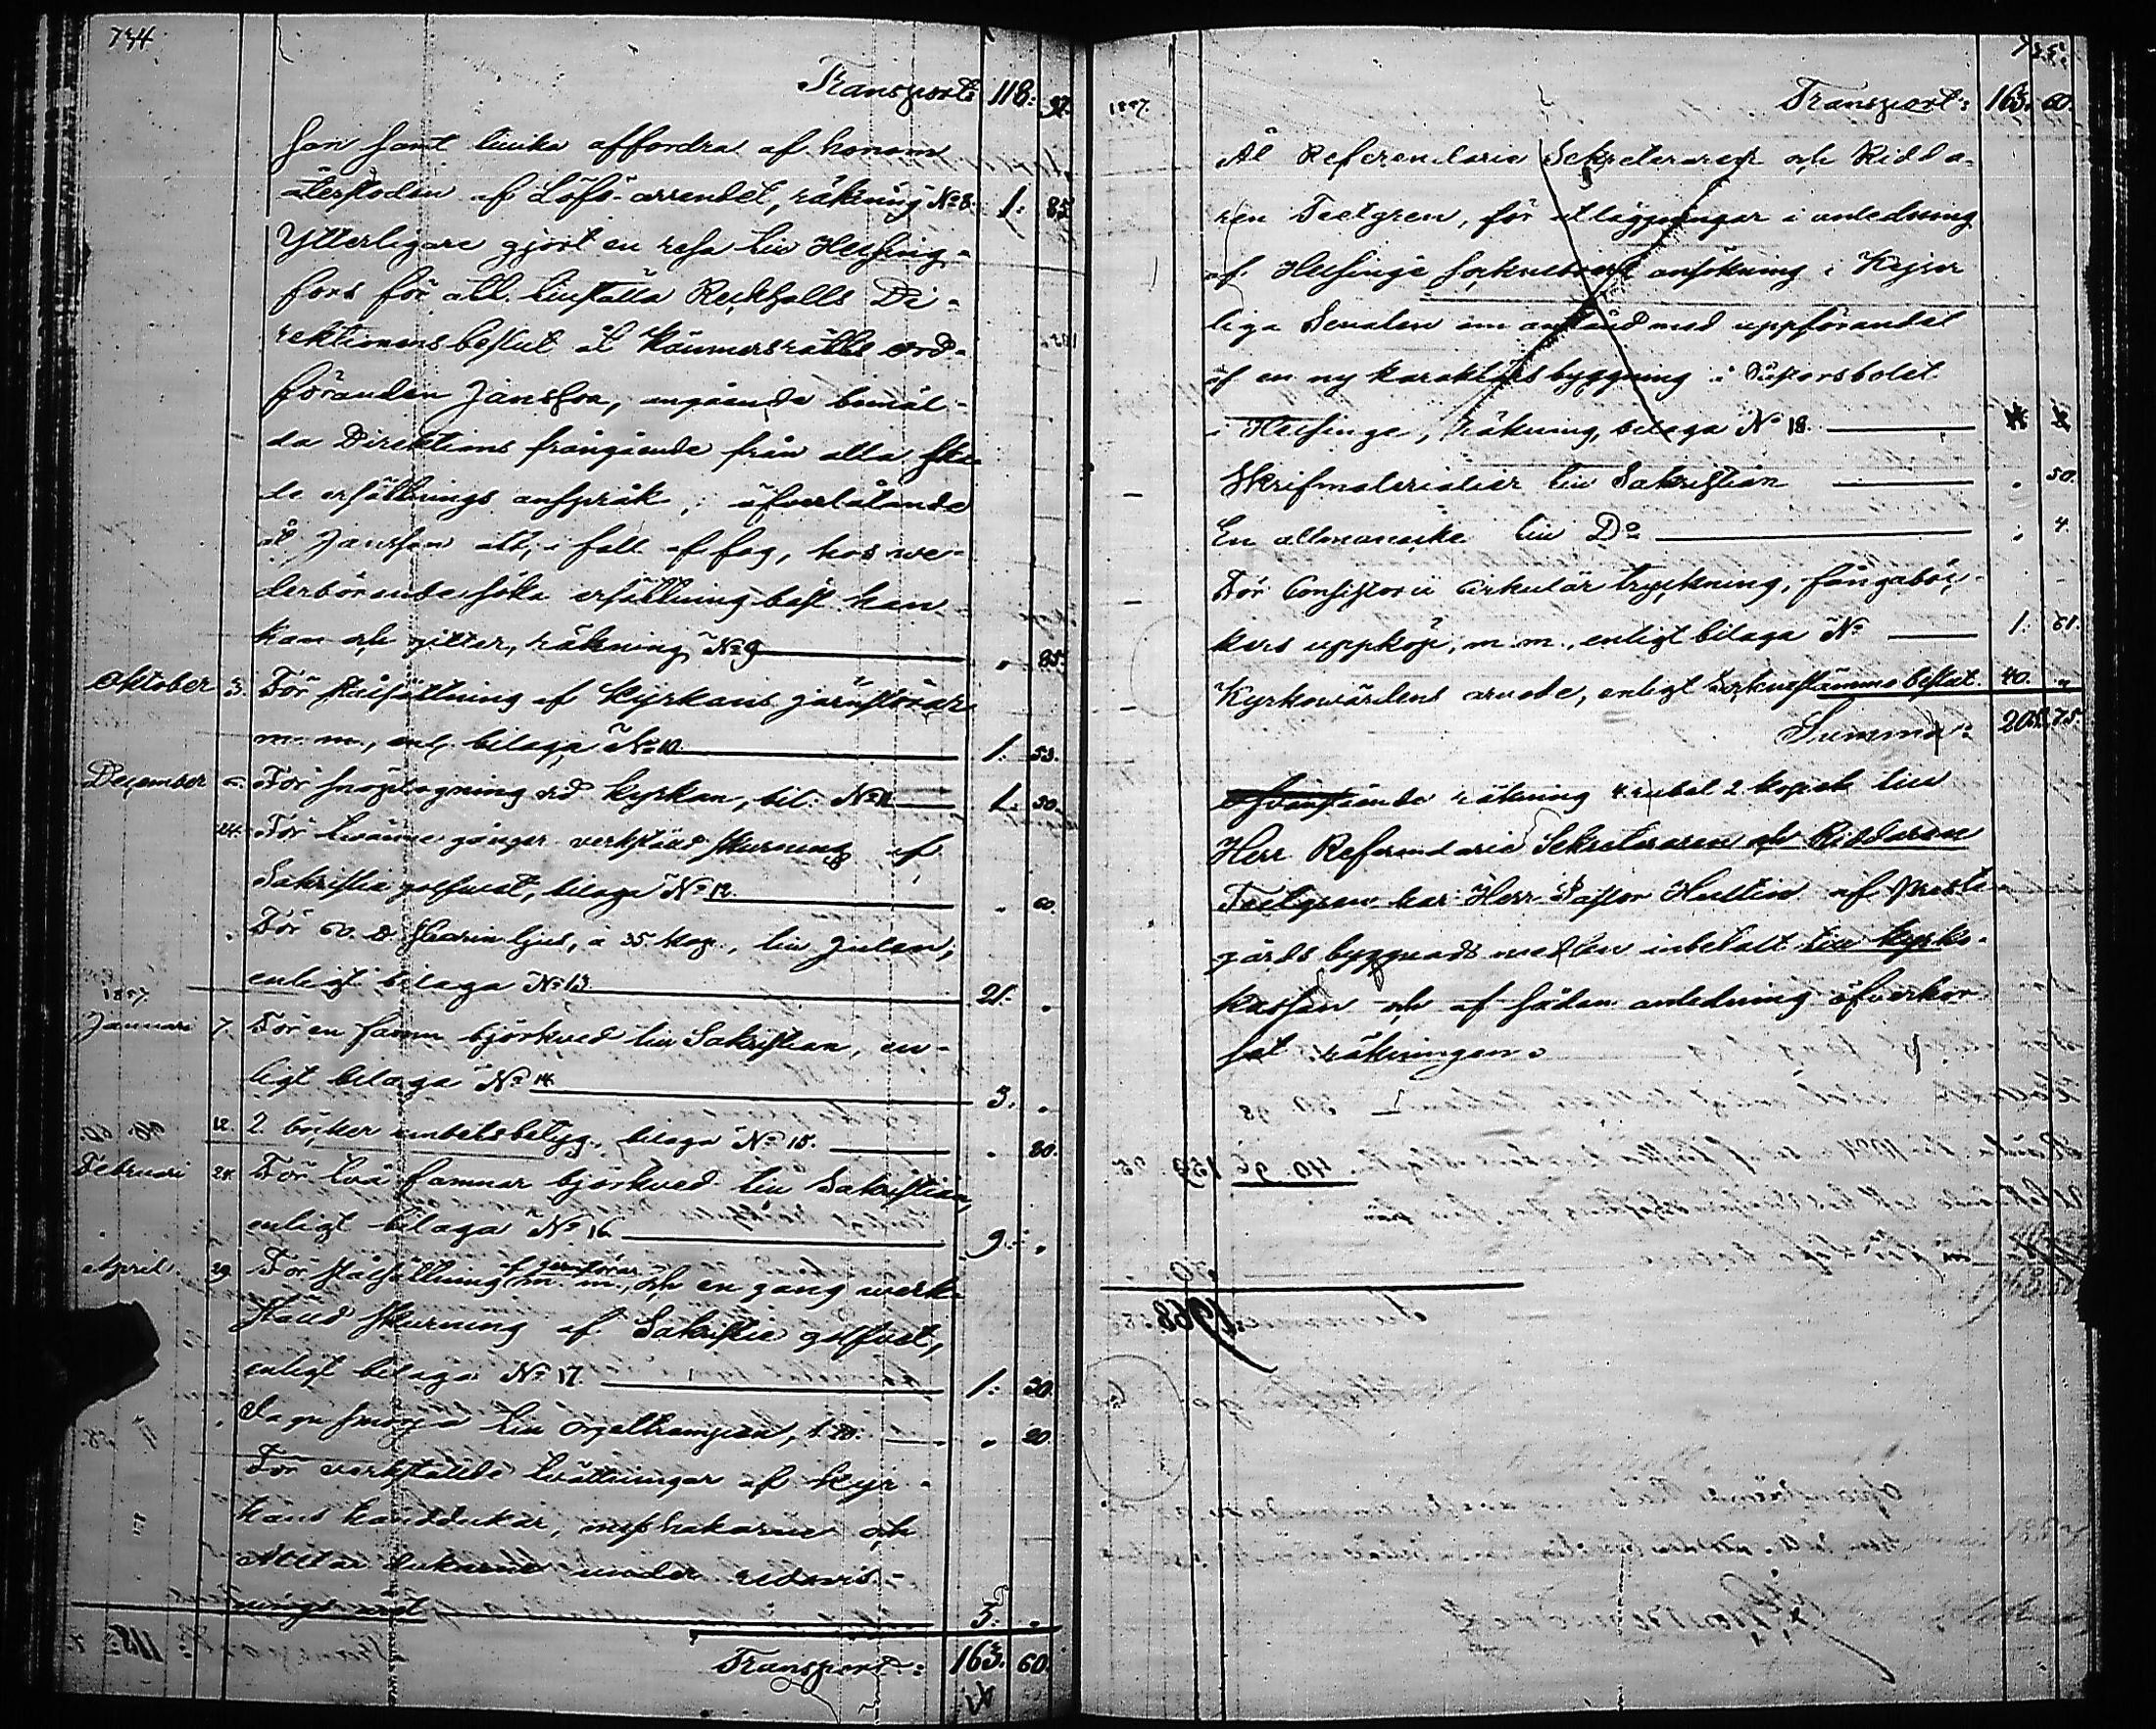 734
Transport: 118: 37.
son samt tillika affordra af honom
återstoden af Löfö-arrendet, räkning No 8. 1: 85
Ytterligare gjort en resa till Helsing-
fors för att tillställa Direktions
rektionens beslut åt Kämnersrätts ord-
föranden Jansson, angående bemäl-
da Direktions frångående från alla ska-
de ersättnings anspråk, öfverlåtande
åt Jansson att, i fall af fog, hos we-
derbörande söka ersättning bäst han
kan och gitter, räkning No 9 „ 85.
Oktober 3. För stålsättning af Kyrkans järnstörar
m. m., enl. bilaga No 10 1. 53.
December För snöplogning vid Kyrkan, bil. No 11 1. 30.
24. För twänne gånger verkställd skurning af
Sakristie golfwet, bilaga No 12. „ 60.
För 60 ℔ Stearin ljus, à 35 kop., till Julen,
enligt bilaga No 13 21. „
1857.
Januari 7. För en famn björkved till Sakristian, en-
ligt bilaga No 14 3. „
12. 2 böcker ämbetsbetyg, bilaga No 15. „ 80.
Februari 24. För två famnar björkved till Sakristian,
enligt bilaga No 16 9: „
April 29. För stålsättning af jernstörar m. m., och en gång werk-
ställd skurning af Sakristie golfvet,
enligt bilaga No 17. 1: 30.
till orgeltrampan, „ 20.
För verkställde tvättningar af Kyr-
kans handdukar, messhakarne och
Altar dukarne under redovis-
nings året 3: „
Transport: 163. 60.
735.
1857. Transport: 163. 60.
Åt Referendarie Sekreteraren och Ridda-
ren Teetgren, för utläggningar i anledning
af Helsinge Sockneboers ansökning i Kejser
liga Senaten om anstånd med uppförandet
af en ny karaktersbyggning i
i Helsinge, räkning, bilaga No 18.
Skrifmaterialier till Sakristian „ 50.
En allmanacka till Do „ 4.
För Consistorii cirkulär tryckning, fångeböc-
kers uppköp, m. m., enligt bilaga No 1: 61.
Kyrkowärdens arvode, enligt Sockenstämmo beslut 40. „
Summa: 205. 75.
Ofvanstående räkning 4 rubel 2 kopek till
Herr Referendarie Sekreteraren och Riddaren
Teetgren har Herr Pastor Hultin af Prest-
gårds byggnads medlen inbetalt till Kyrko-
kassan och af sådan anledning öfverkor-
sat räkningen.